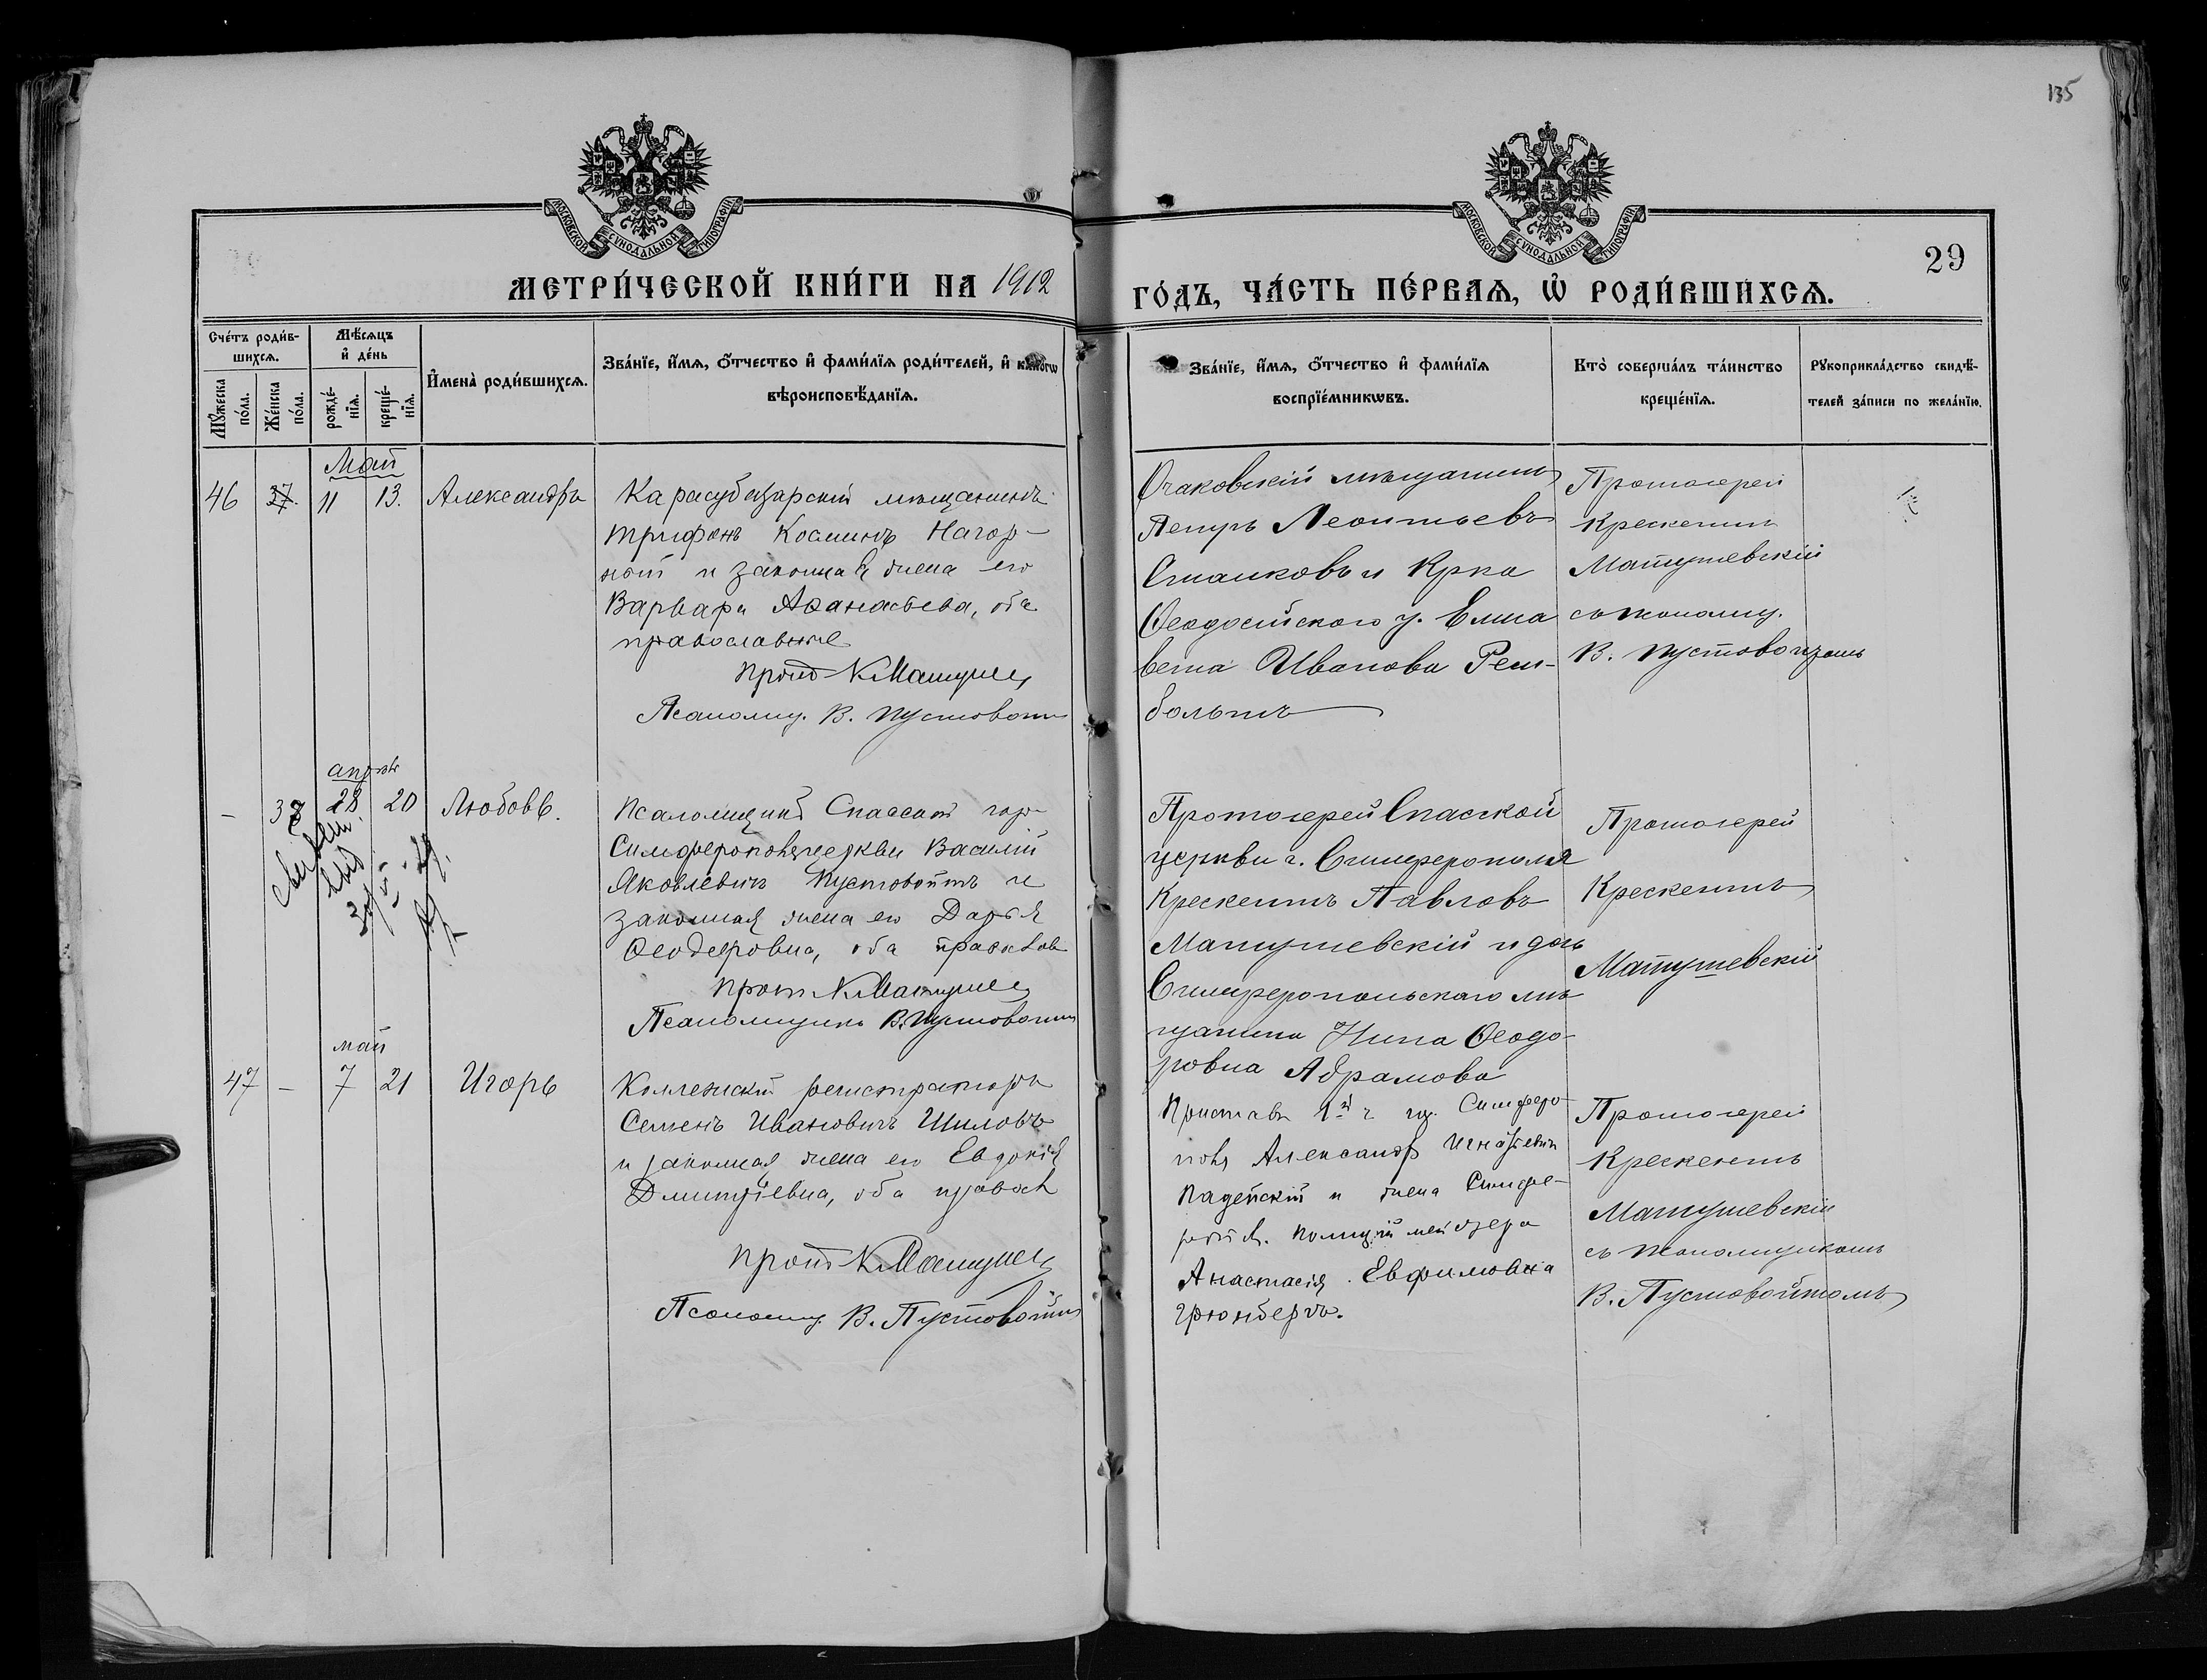 135
МОСКОВСКОЙ СѴНОДАЛЬНОЙ ТИПОГРАФІИ
МОСКОВСКОЙ СѴНОДАЛЬНОЙ ТИПОГРАФІИ
29
МЕТРИ́ЧЕСКОЙ КНИ́ГИ НА 1912
ГО́ДЪ, ЧА́СТЬ ПЕ́РВАѦ, Ѡ҆ РОДИ́ВШИХСѦ.
Сче́тъ роди́в-
шихсѧ.
Мꙋ́жеска по́ла.
Же́нска по́ла.
Мѣ́сѧцъ
и҆ де́нь
рожде́-нїѧ.
креще́-нїѧ.
И҆мена̀ роди́вшихсѧ.
Зва́нїе, и҆́мѧ, ѻ҆́тчество и҆ фами́лїѧ роди́телей, и҆ како́гѡ
вѣроисповѣ́данїѧ.
Зва́нїе, и҆́мѧ, ѻ҆́тчество и҆ фами́лїѧ
воспрїе́мникѡвъ.
Кто̀ соверша́лъ та́инство
креще́нїѧ.
Рꙋкоприкла́дство свидѣ́-
телей за́писи по жела́нїю.
Май
46 37. 11 13. Александръ
Карасубазарскій мѣщанинъ
Трифонъ Косминъ Нагор-
ный и законная жена его
Варвара Аѳанасьева, оба
православные
Прот К Матушев
Псаломщ. В. Пустовойтъ
Очаковскій мѣщанинъ
Петръ Леонтьевъ
Станковъ и Крка
Ѳеодосійского у. Елиса
вета Иванова Рем-
больтъ
Протоіерей
Крескентъ
Матушевскій
съ псаломщ.
В. Пустовойтомъ
апрѣль
— 38 28 20 Любовь.
Псаломщикъ Спасской гор
Симферополя церкви Василій
Яковлевичъ Пустовойтъ и
законная жена его Дарья
Ѳеодоровна, оба правосл
Прот К Матушев
Псаломщикъ В. Пустовойтъ
Протоіерей Спасской
церкви г. Симферополя
Крескентъ Павловъ
Матушевскій и дочь
Симферопольского мѣ
щанина Нина Ѳеодо-
ровна Абрамова
Протоіерей
Крескентъ
Матушевскій
май
47 — 7 21 Игорь
Коллежскій регистраторъ
Семенъ Ивановичъ Шиловъ
и законная жена его Евдокія
Дмитріевна, оба правосл
Прот К Матушев
Псаломщ. В. Пустовойтъ
Приставъ 1й ч гор. Симферо-
поля Александр Игнатьевич
Падейскій и жена Симфе-
роп. Полицiймейстера
Анастасія Евфимовна
Грюнбергъ.
Протоіерей
Крескентъ
Матушевскій
съ псаломщикомъ
В. Пустовойтомъ